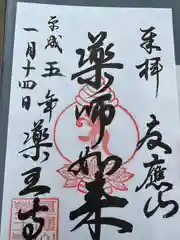 奉拝
醫應山
薬師如来
平成五年
一月十四日
薬王寺